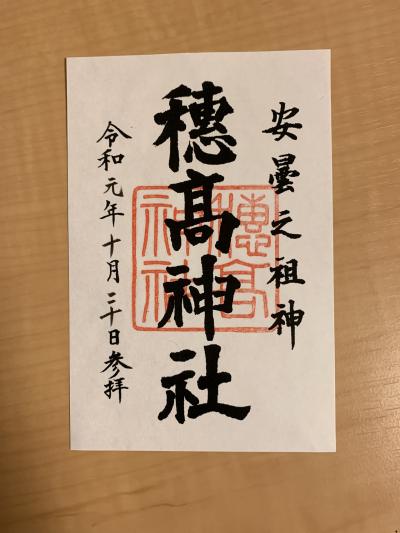 安曇之祖神
穗髙神社
令和元年十月二十日参拝
穗髙
神社